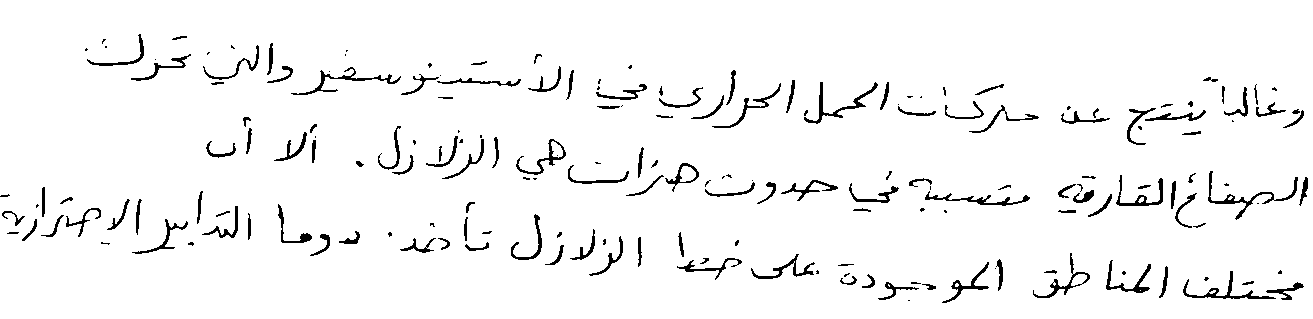 وغالباً ينتج عن حركات الحمل الحراري في الأستينوسفير والتي تحرك
الصفائح القارية متسببه في حدوث هزات هي الزلازل. ألا أن
مختلف المناطق الموجودة على خط الزلازل تأخذ دوما التدابير الإحترازية